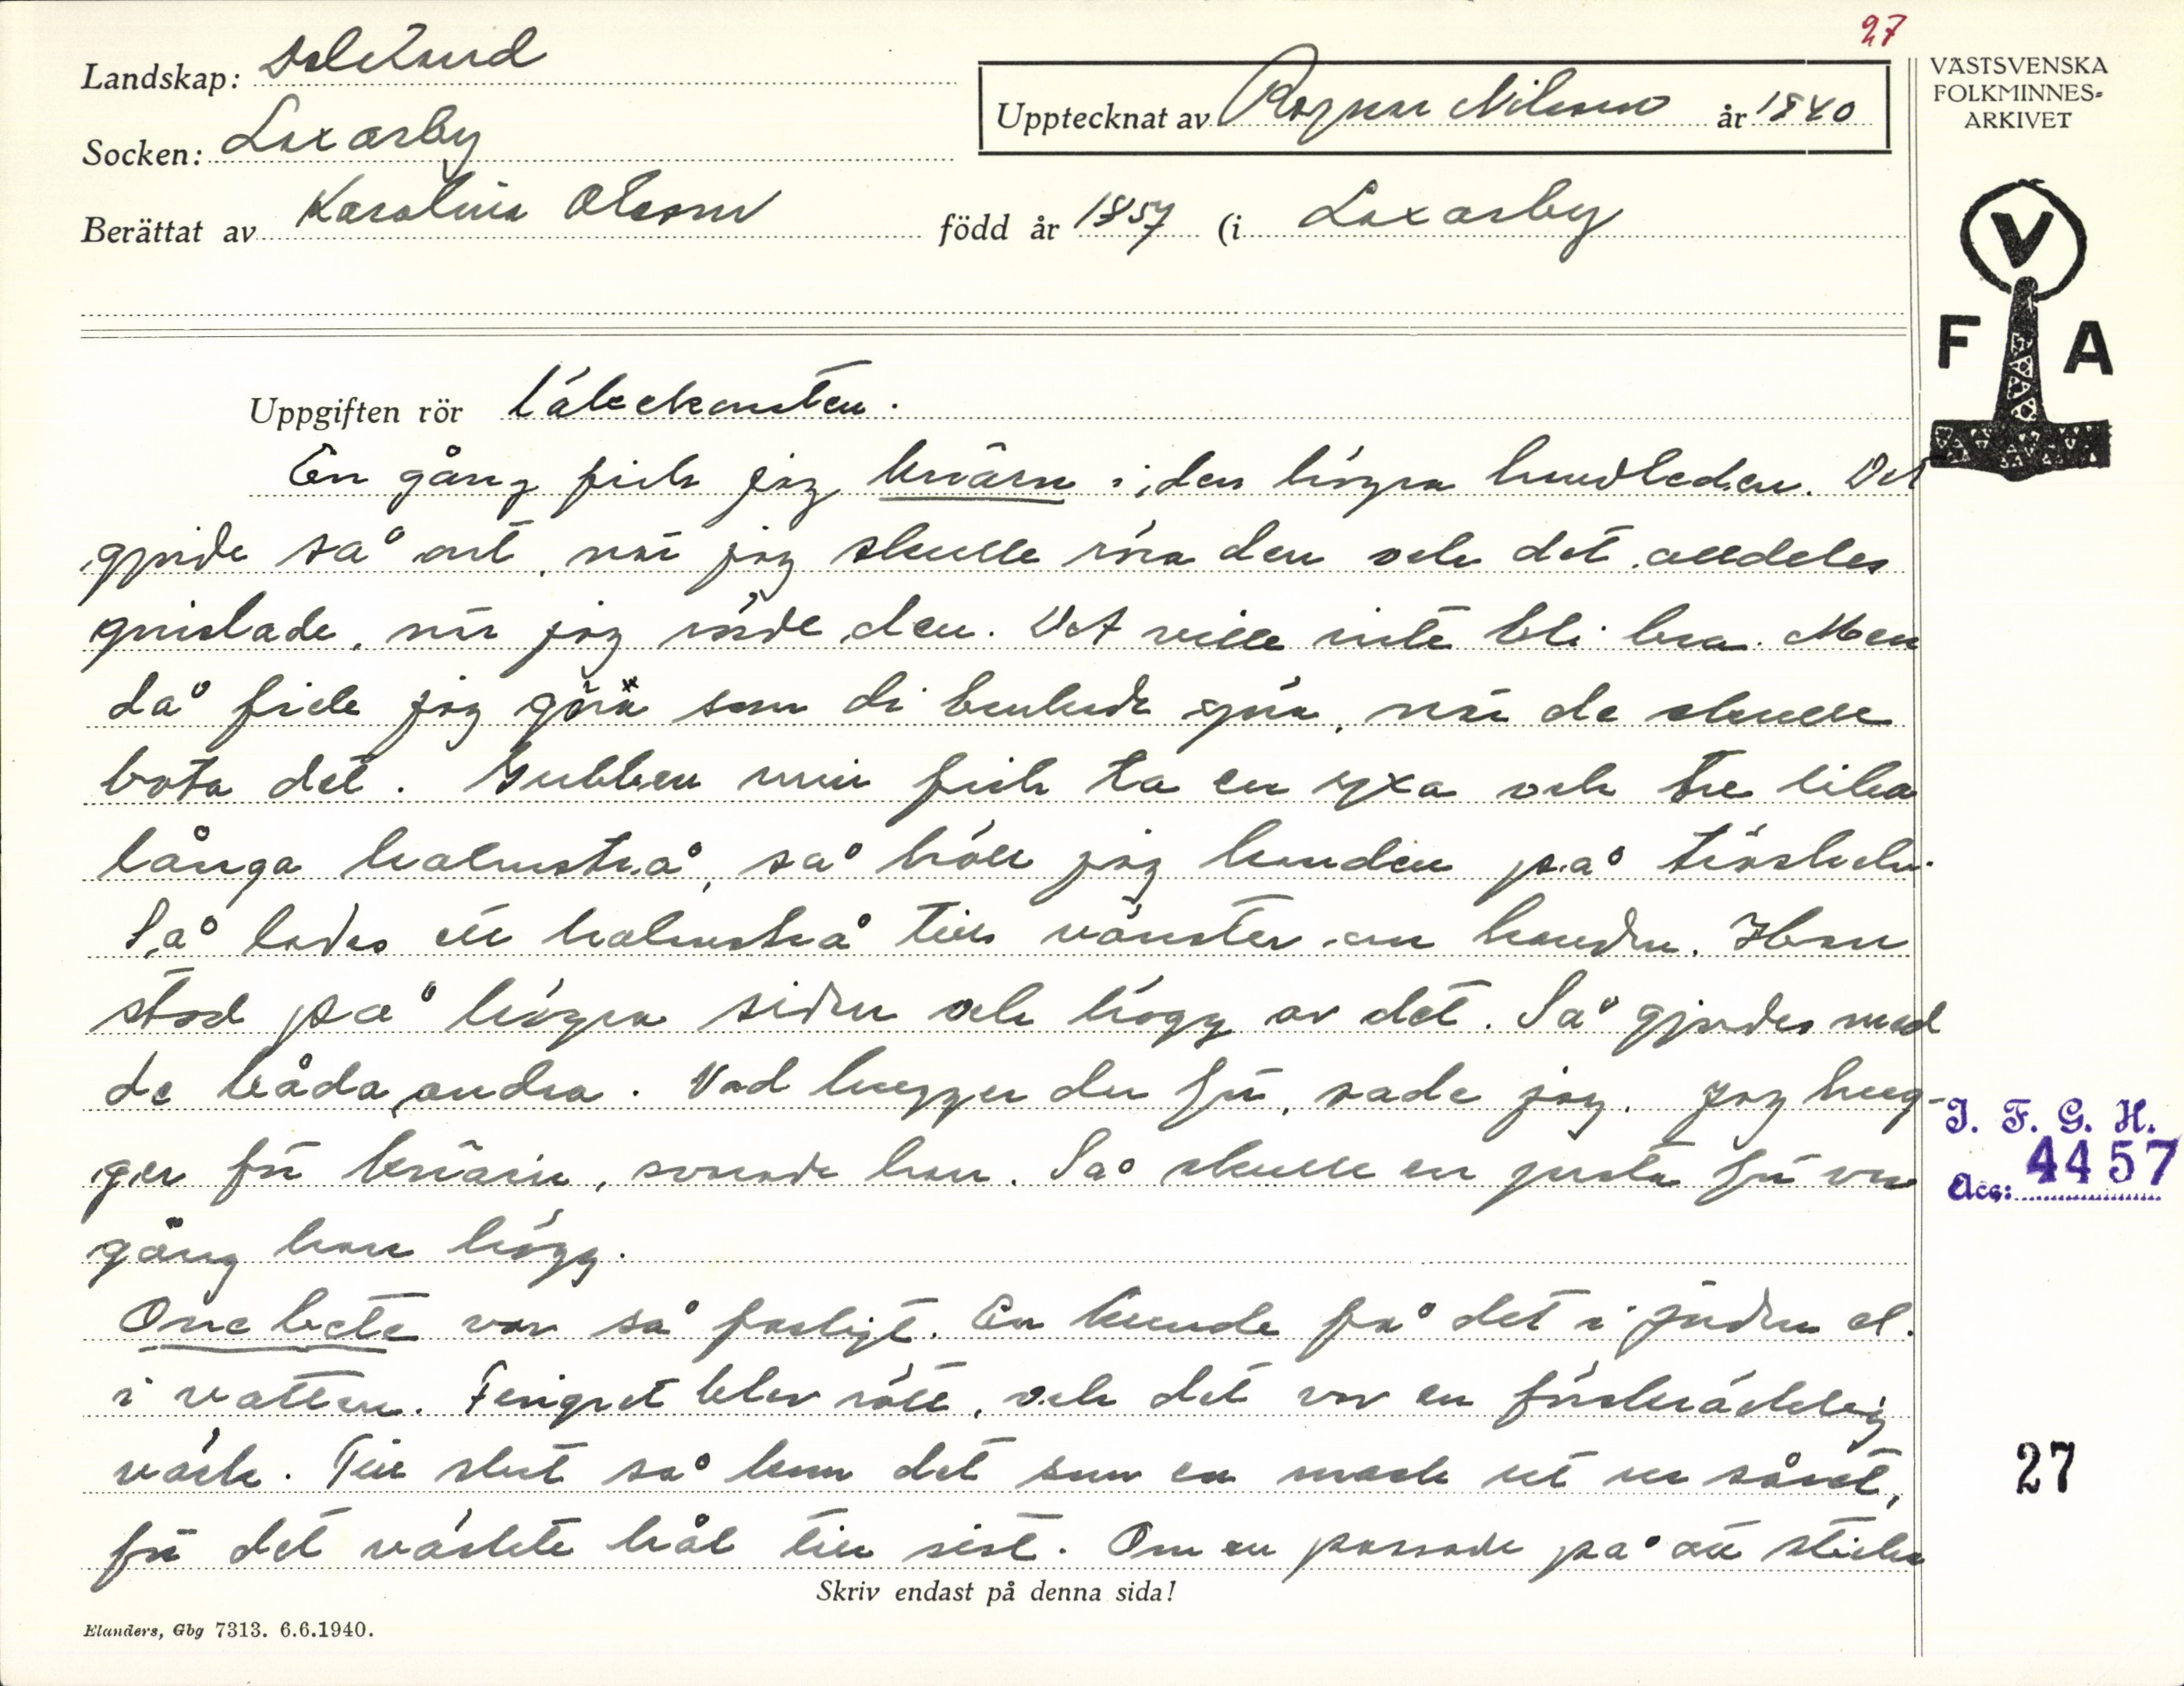 27
Landskap: Dalsland
Upptecknat av Ragnar Nilsson år 1940
VÄSTSVENSKA
FOLKMINNES-
ARKIVET
Socken: Laxarby
Berättat av Karolina Olsson född år 1857 (i Laxarby
V
F A
Uppgiften rör Läkekonsten.
En gång fick jag knärn i den högra handleden. Det
gjorde så ont, när jag skulle röra den och det alldeles
gnislade, när jag rörde den. Det ville inte bli bra. Men
då fick jag göra som di brukade göra, när de skulle
bota det. Gubben min fick ta en yxa och tre lika
långa halmstrå, så höll jag handen på tröskeln.
Så lades ett halmstrå till vänster om handen. Han
stod på högra sidan och högg av det. Så gjordes med
de båda andra. Vad hugger du för, sade jag. Jag hug-
ger för knärn, svarade han. Så skulle en prata för var
gång han högg.
Onebete var så farligt. En kunde få det i jorden el.
i vatten. Fingret blev rött, och det var en förskräcklig
värk. Till slut så kom det som en mask ut ur såret,
för det värkte hål till sist. Om en passade på att sticka
Skriv endast på denna sida!
Elanders, Gbg 7313. 6.6.1940.
I. F. G. H.
Acc: 4457
27